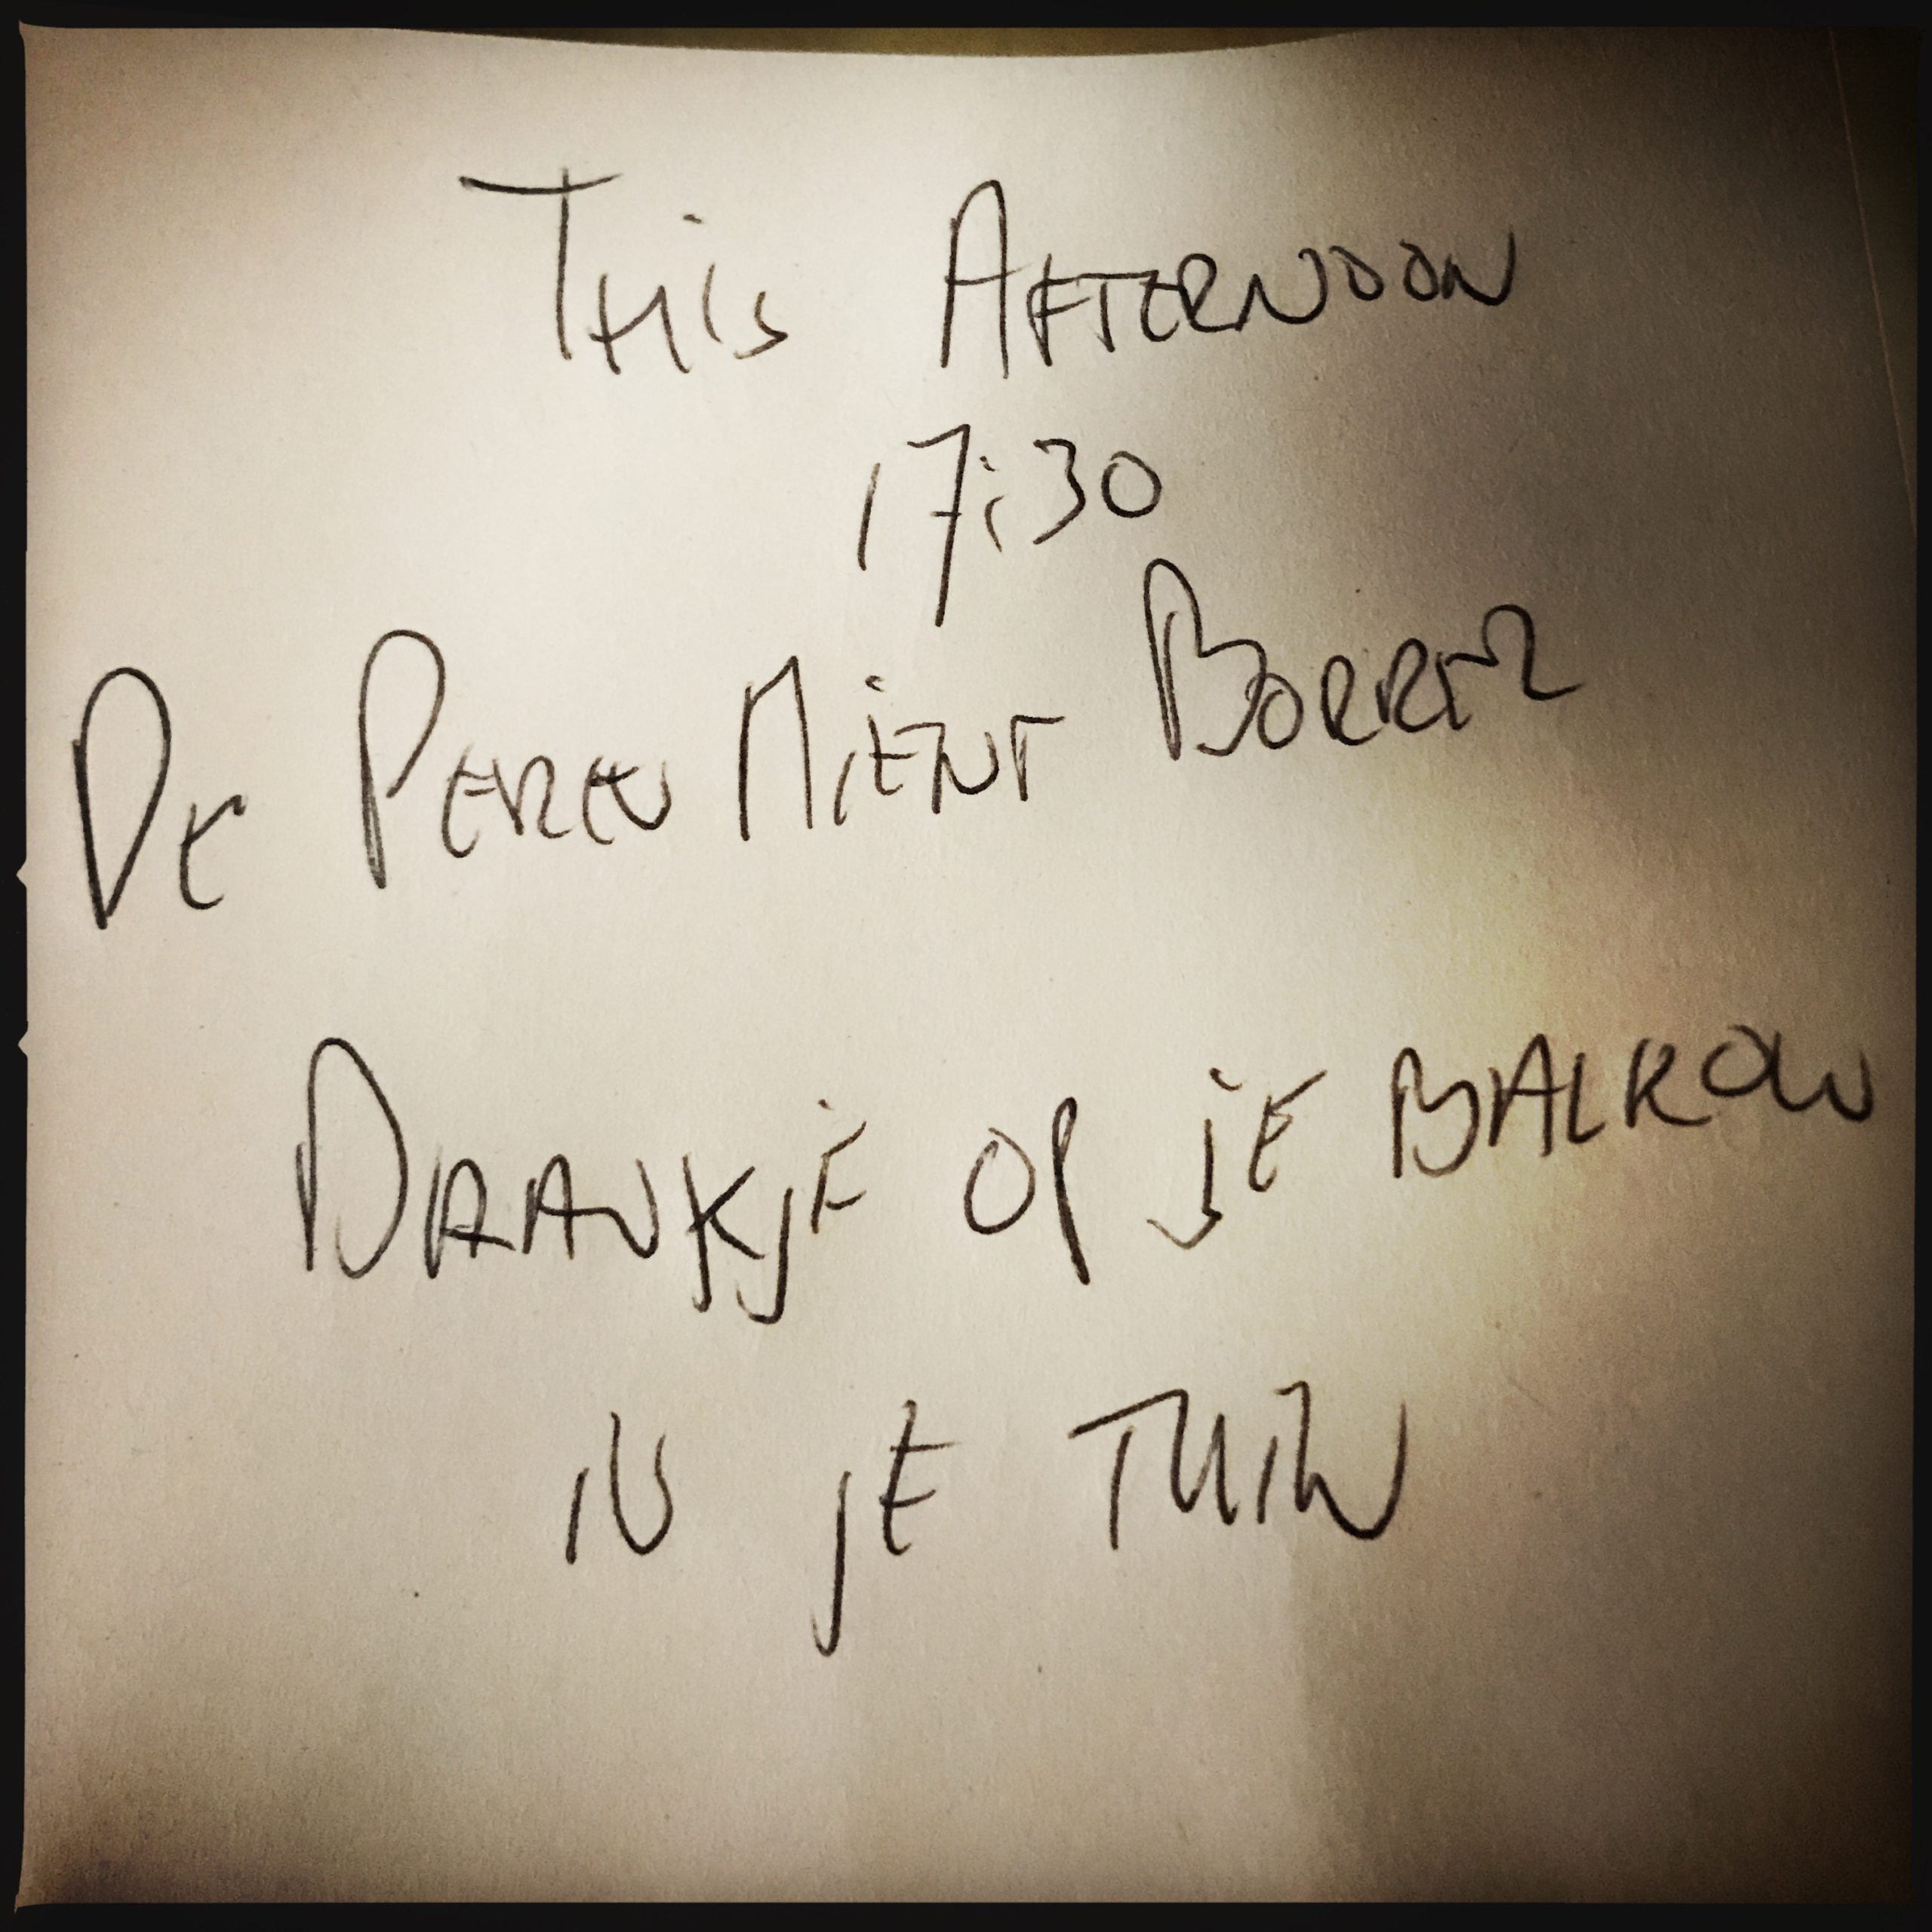 This Afternoon
17:30
De Peren Mient Borrel
Drankje op je balkon
in je tuin